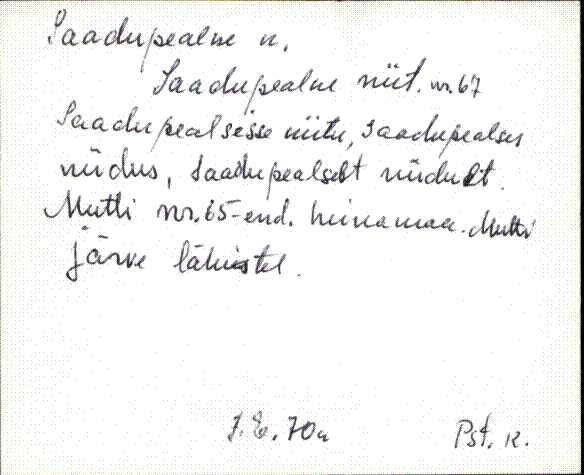 Saadupealne n.
Saadupealne niit. nr. 67
Saadupealsesse niitu, saadupealses
niidus, saadupealselt niidult.
Mutti nr. 65-end. heinamaa. Mutti
järve lähistel.
J. E. 70a
Pst. k.